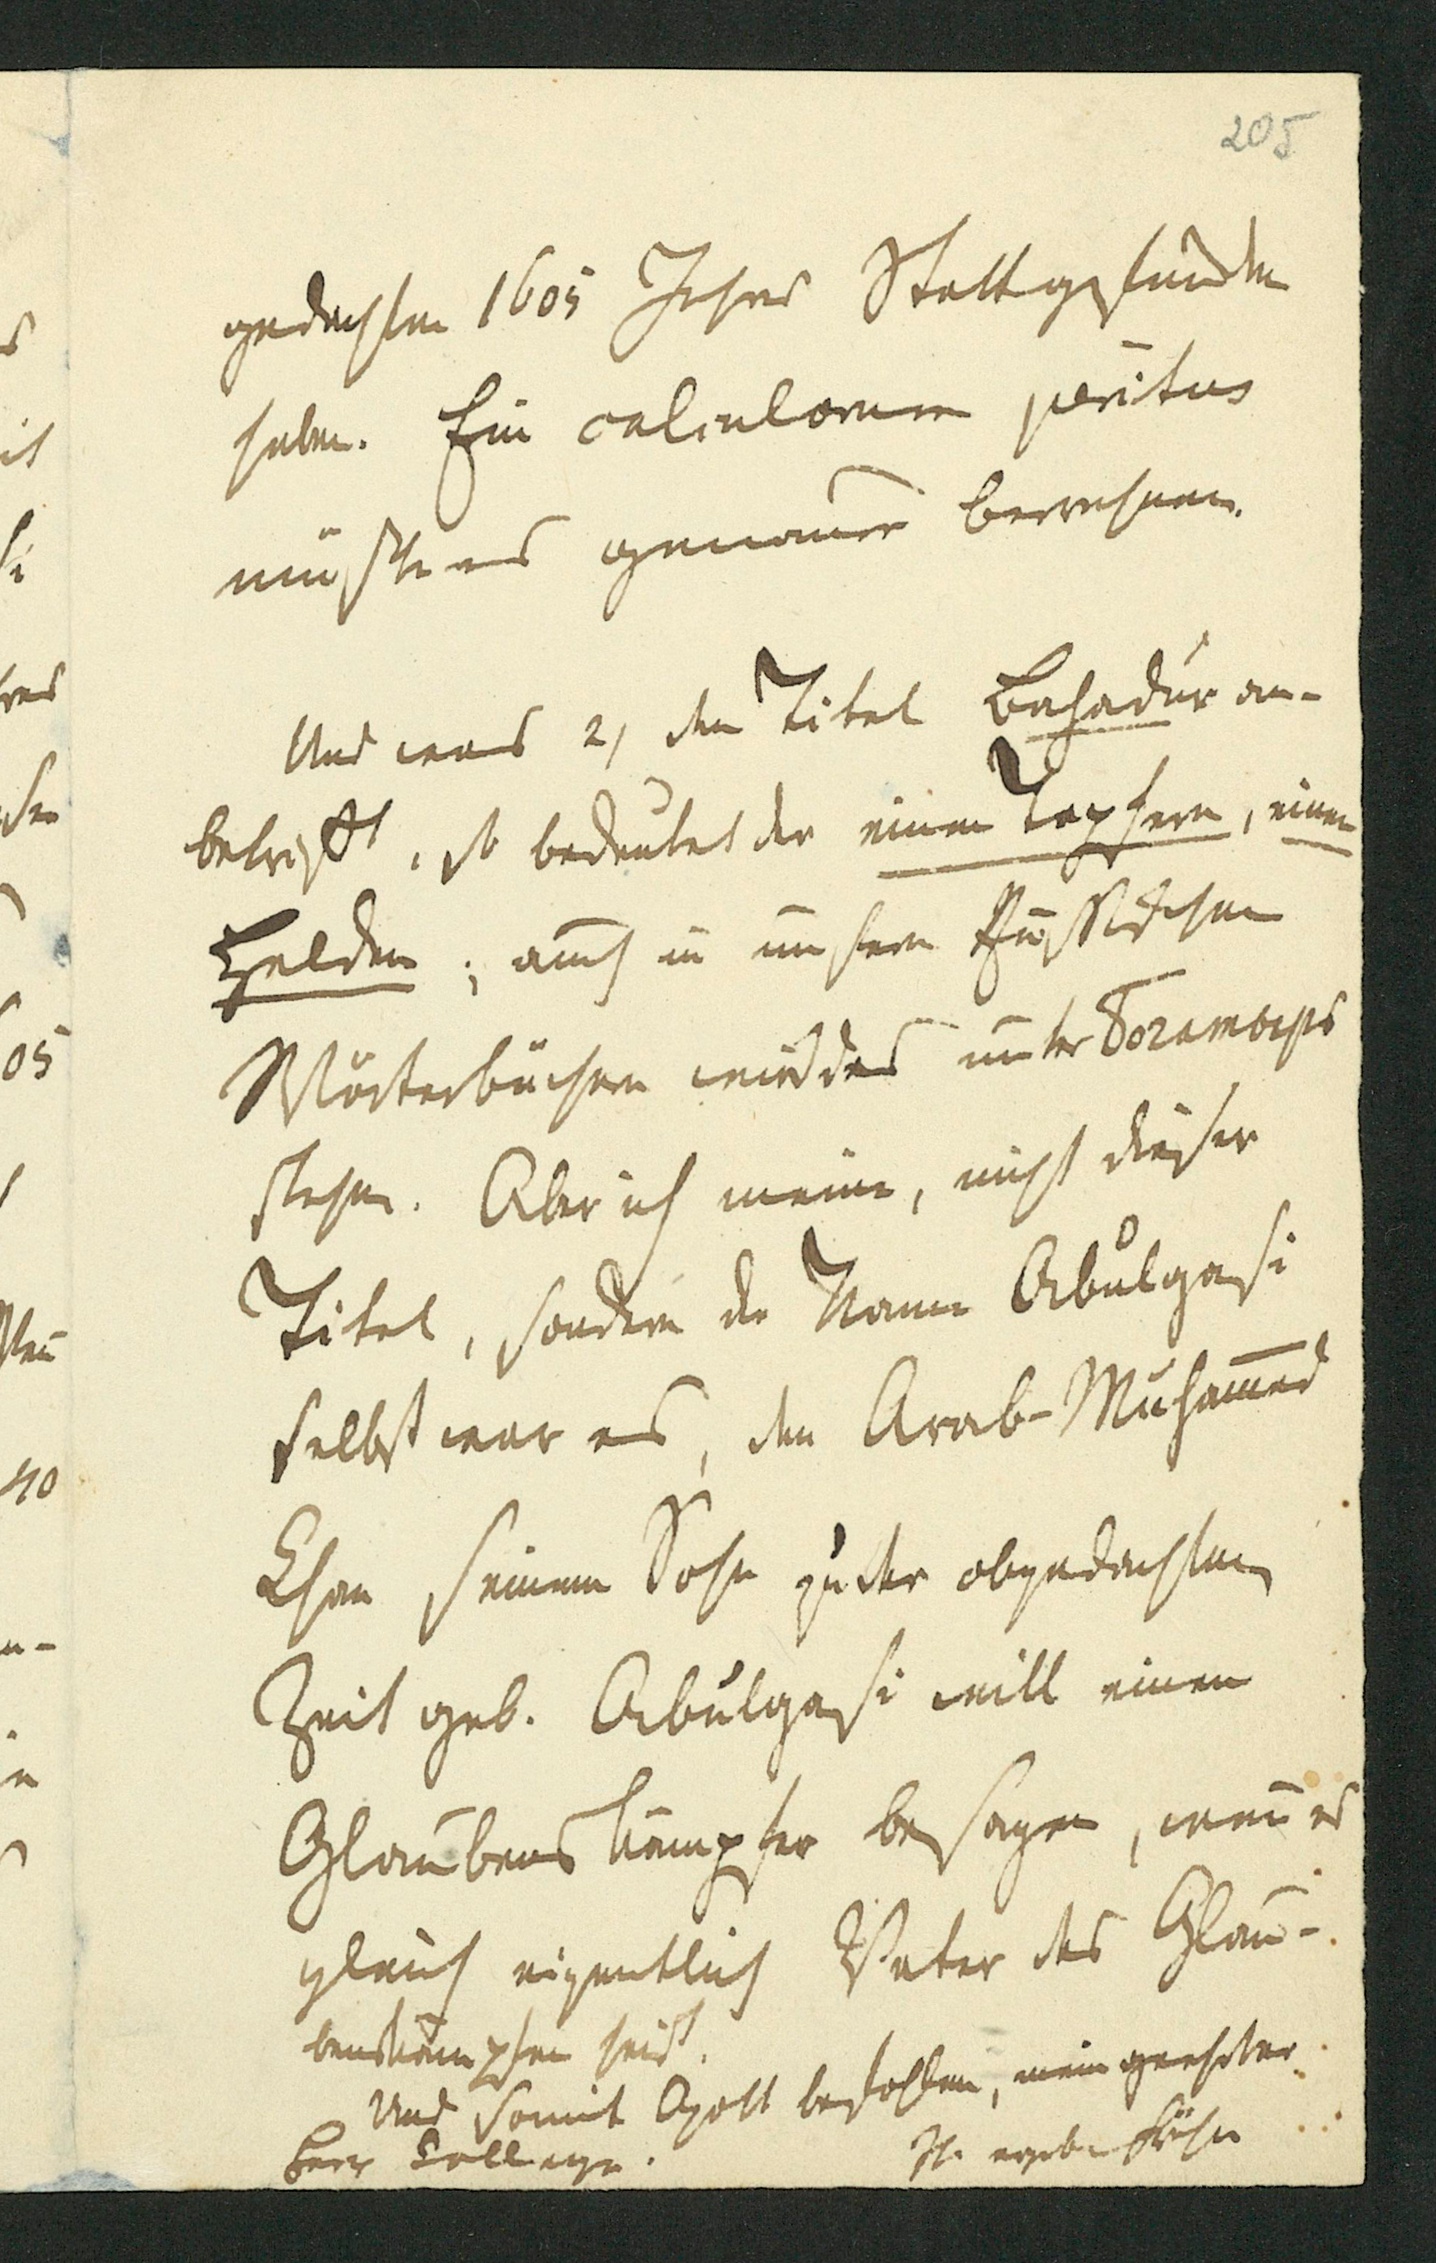 205
gedachten 1605 Jahres Statt gefunden
haben. Ein calculorum peritus
müßte es genauer berechnen.
Und was 2, den Titel Bahadur an-
betrifft, so bedeutet der einen Tapfern, einen
Helden; auch in unsern Russischen
Wörterbüchern wird das unter Богатырь
stehen. Aber ich meine, nicht dieser
Titel, sondern der Name Abulgasi
selbst war es, den Arab-Muhammed
Chan seinem Sohn zu der obgedachten
Zeit gab. Abulgasi will einen
Glaubenskämpfer besagen, wenn es
gleich eigentlich Vater des Glau-
benskämpfers heißt.
Und somit Gott befohlen, mein geehrter
Herr College.
Ihr ergeb. Frähn
05
40